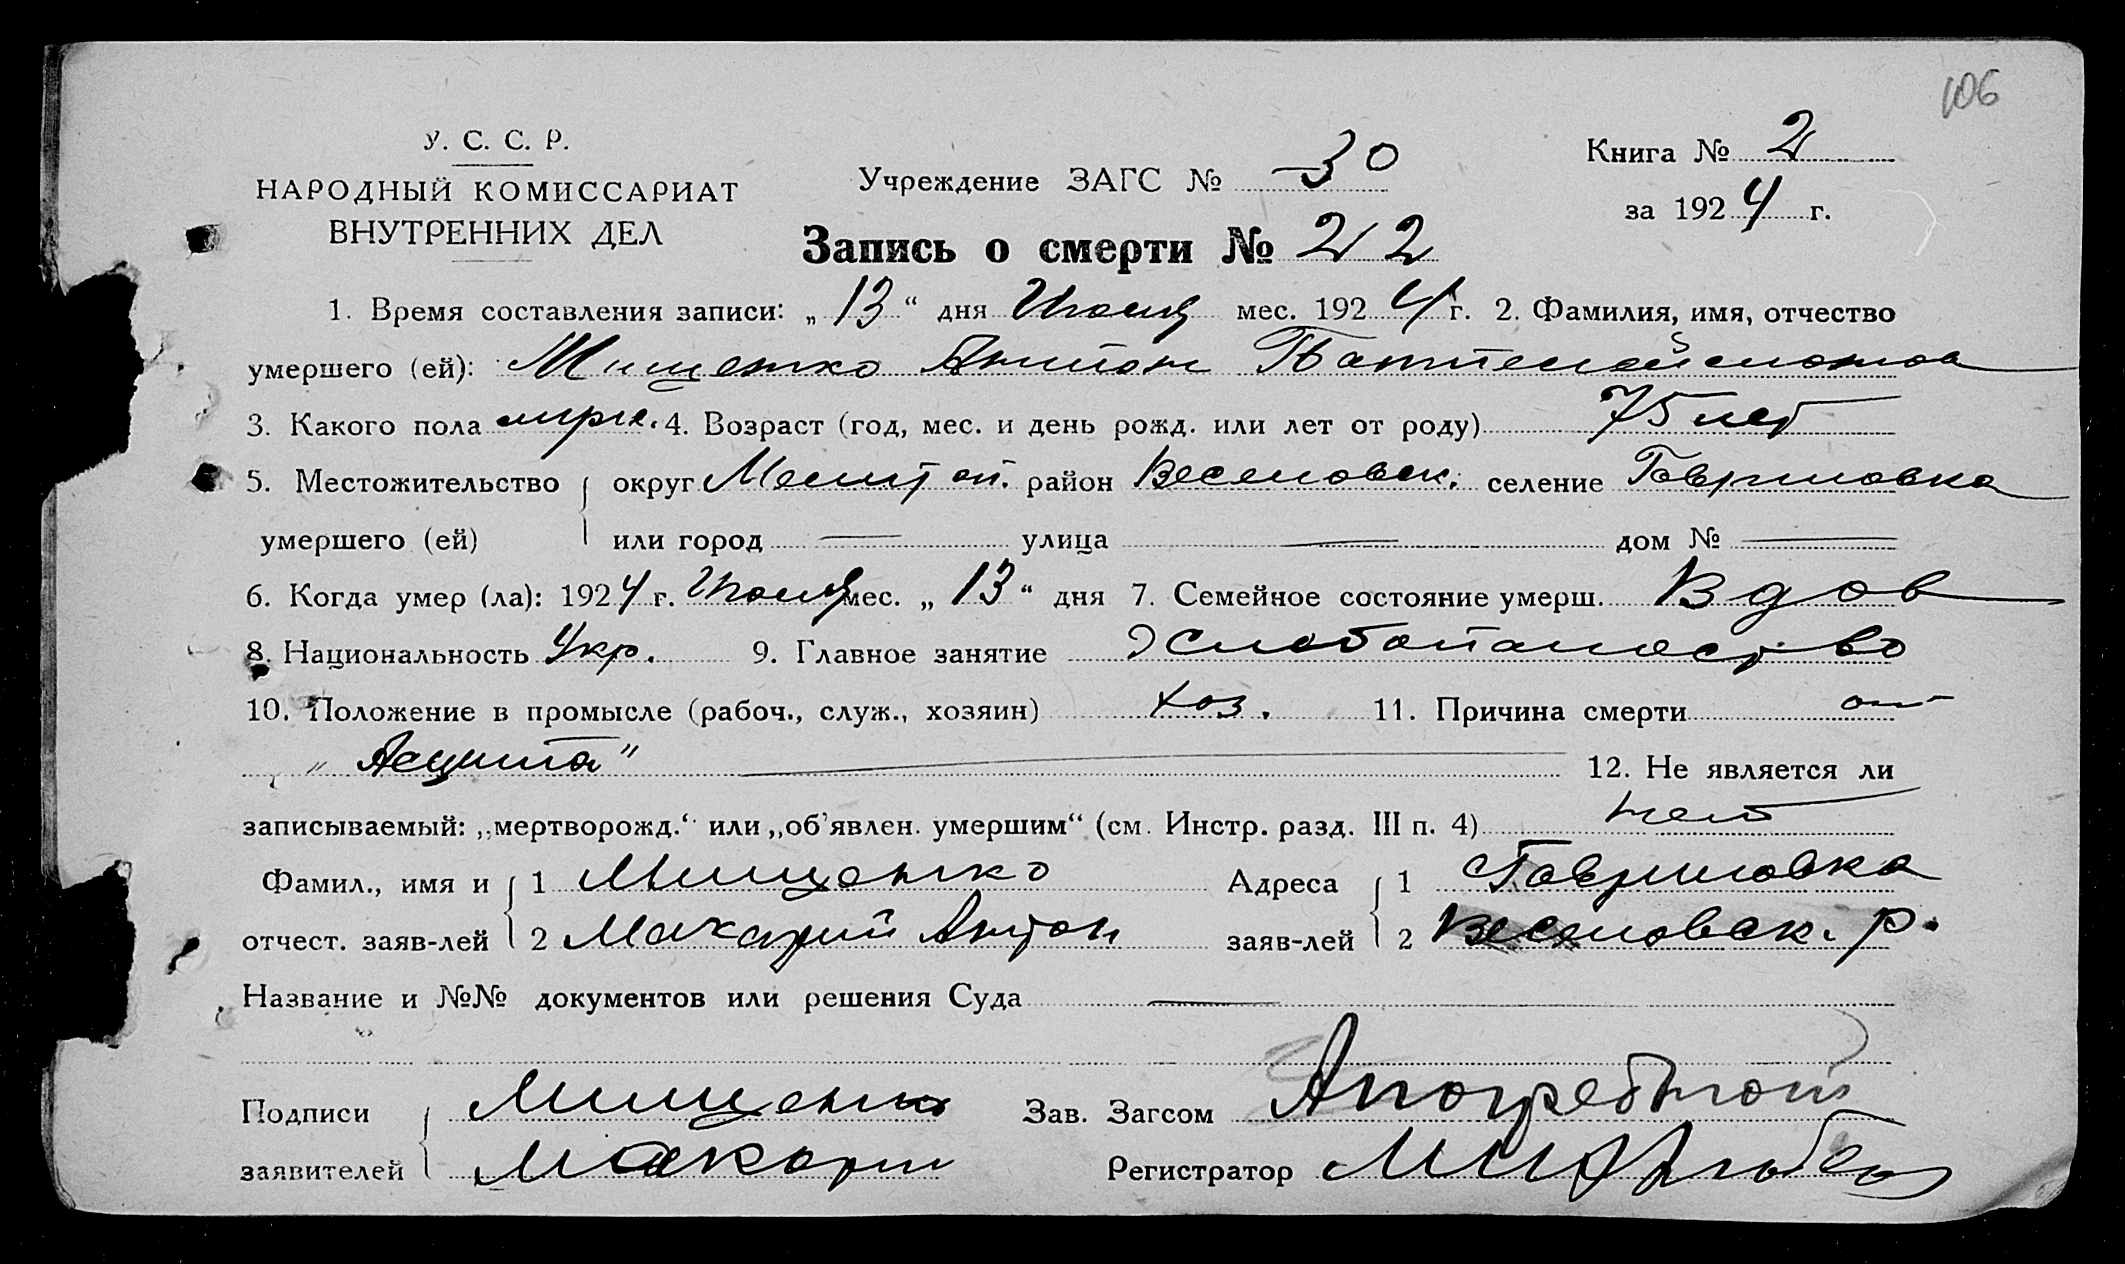 106
У. С. С. Р.
НАРОДНЫЙ КОМИССАРИАТ
ВНУТРЕННИХ ДЕЛ
Учреждение ЗАГС № 30
Книга № 2
за 1924 г.
Запись о смерти № 212
1. Время составления записи: „13“ дня Июля мес. 1924 г. 2. Фамилия, имя, отчество
умершего (ей): Мищенко Антон
3. Какого пола муж. 4. Возраст (год, мес. и день рожд. или лет от роду) 75 лет
5. Местожительство округ Мелитоп. район Веселовск. селение Гавриловка
умершего (ей) или город — улица — дом № —
6. Когда умер (ла): 1924 г. Июля мес. „13“ дня 7. Семейное состояние умерш. Вдов
8. Национальность Укр. 9. Главное занятие Хлебопашество
10. Положение в промысле (рабоч., служ., хозяин) хоз. 11. Причина смерти от
„Асцита“ 12. Не является ли
записываемый: „мертворожд.“ или „об'явлен. умершим“ (см. Инстр. разд. III п. 4) нет
Фамил., имя и 1 Мищенко Адреса 1 Гавриловка
отчест. заяв-лей 2 Макарий Антон заяв-лей 2 Веселовск. р.
Название и №№ документов или решения Суда —
Подписи Мищенко Зав. Загсом
заявителей Макарий Регистратор